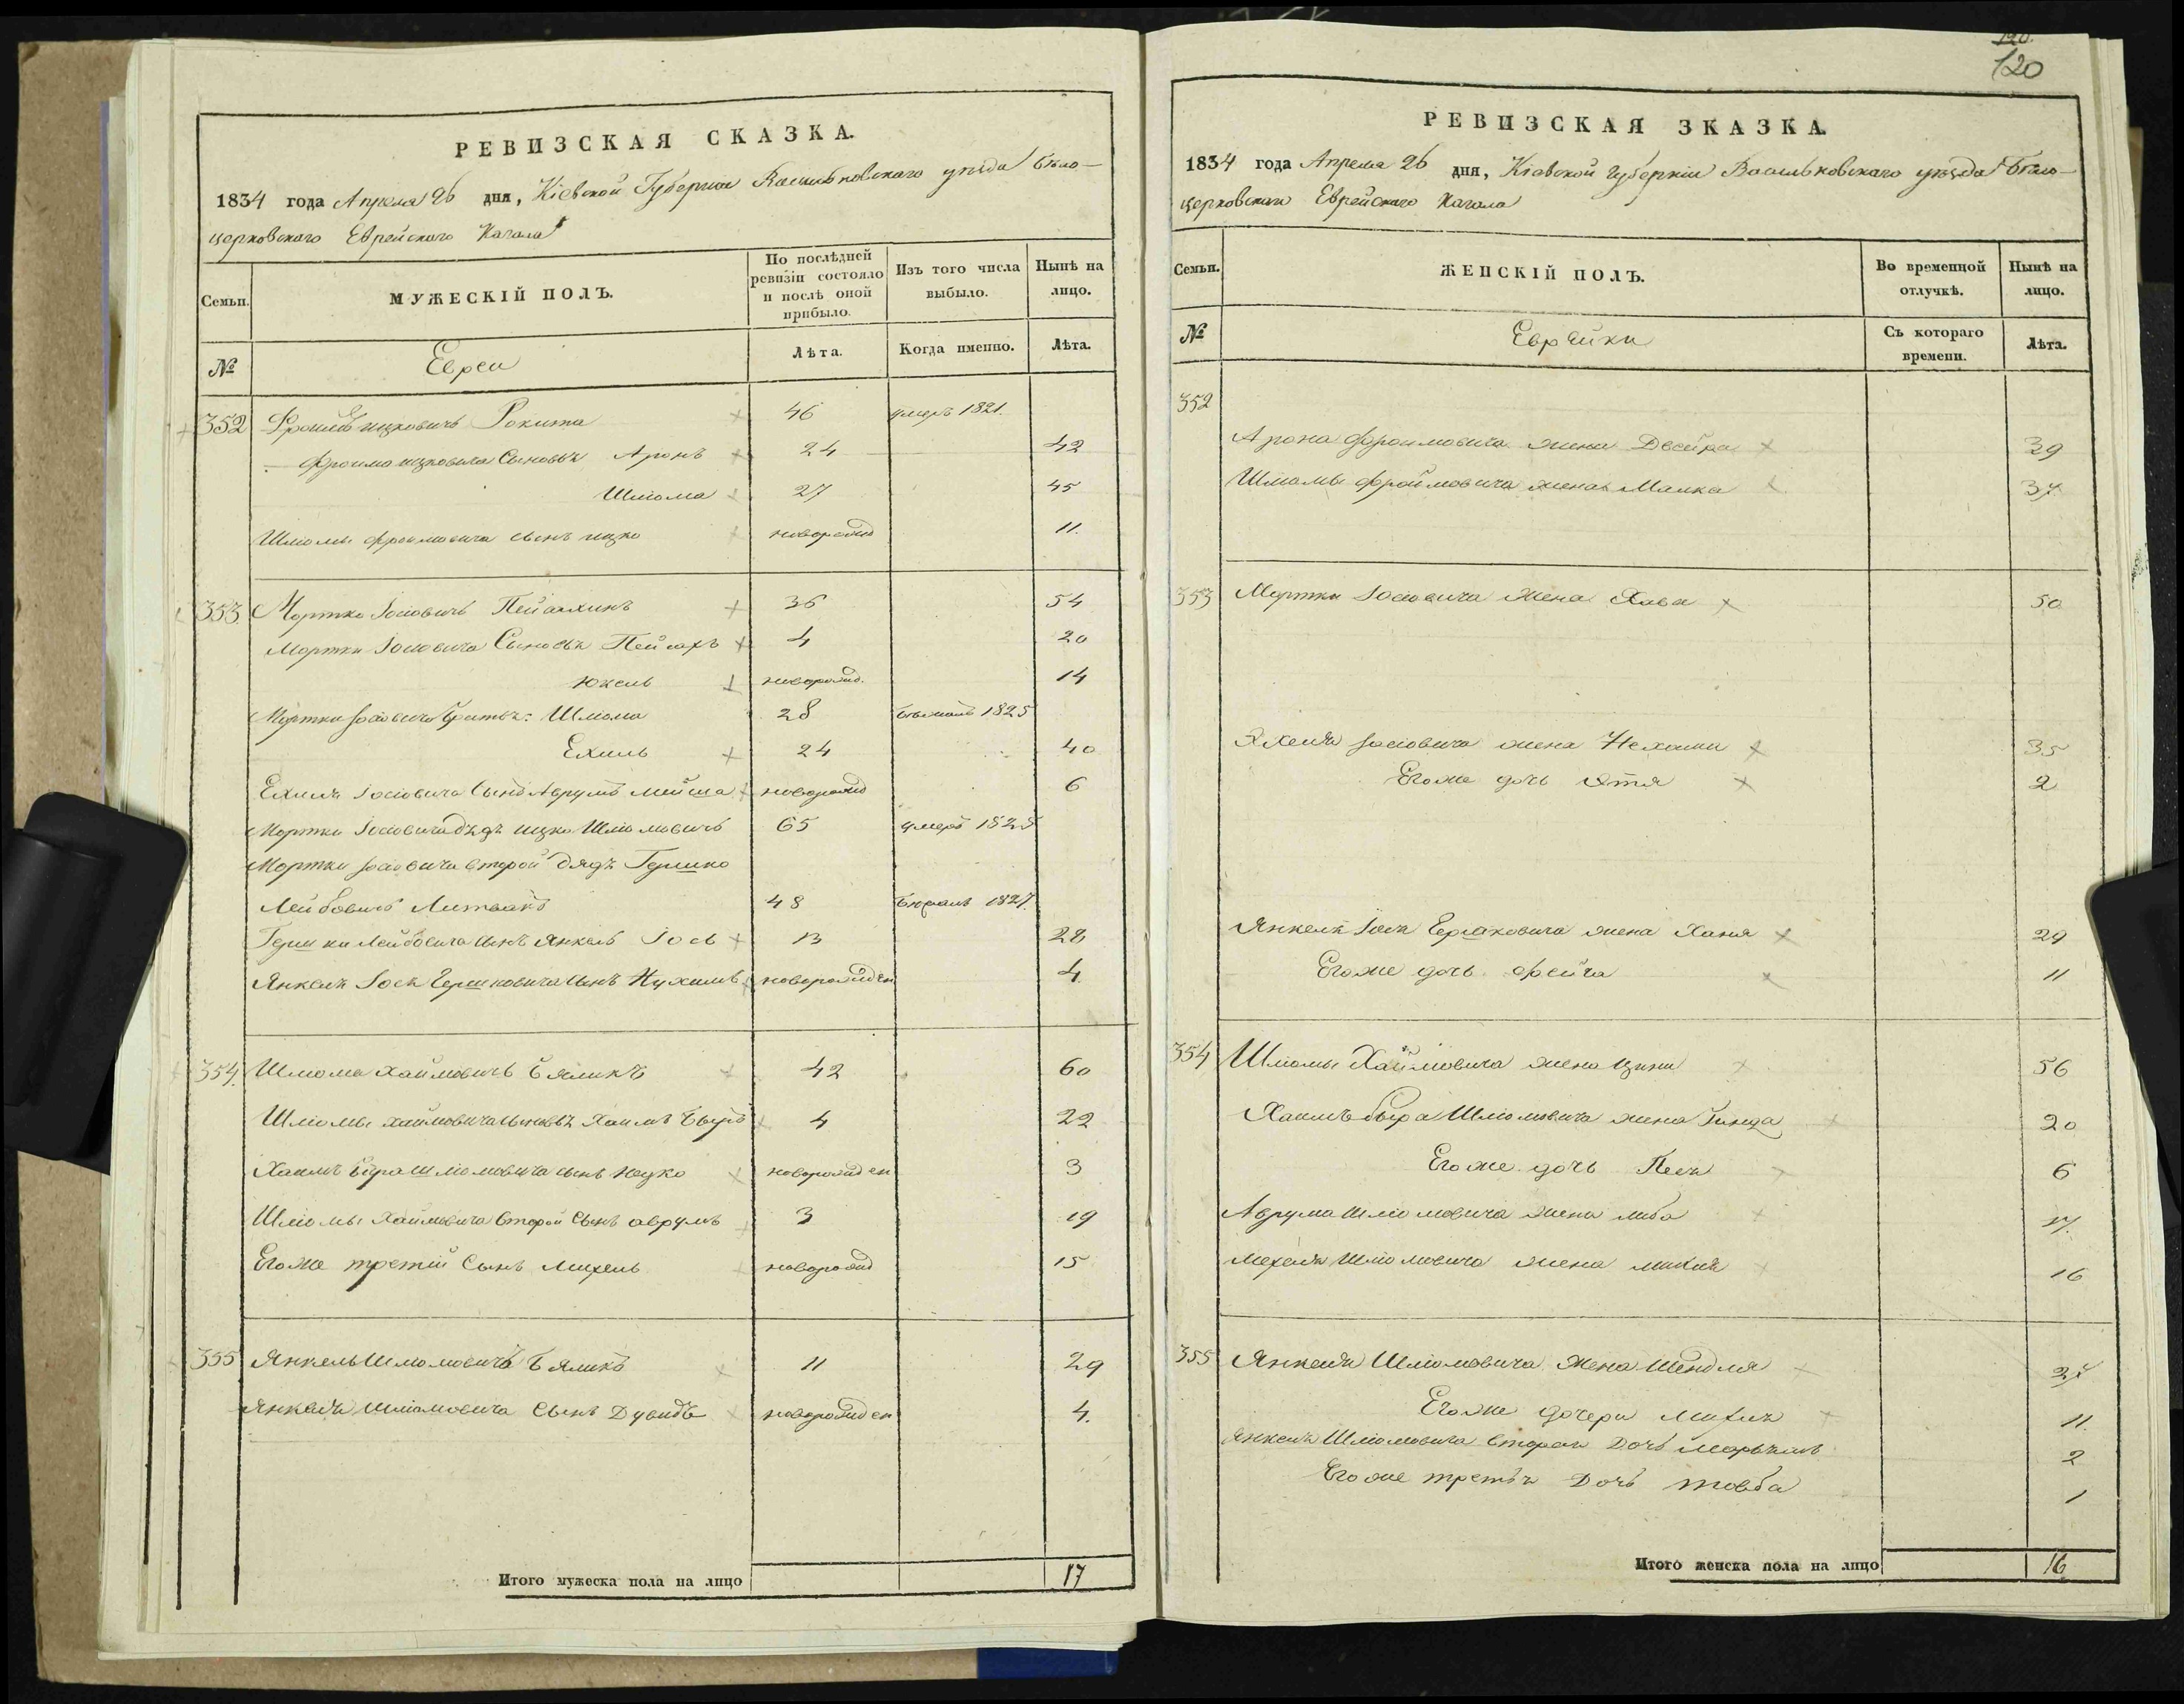 РЕВИЗСКАЯ СКАЗКА.
1834 года Апреля 26 дня, Кіевской Губерніи Васильковскаго уѣзда Бѣло-
церковскаго Еврейскаго Кагала
Семьи.
МУЖЕСКІЙ ПОЛЪ.
По послѣдней ревизіи состояло и послѣ оной прибыло.
Изъ того числа выбыло.
Нынѣ на лицо.
№
Евреи
Лѣта.
Когда именно.
Лѣта.
352 Фроимъ ицковичъ Рокита 46 умеръ 1821.
Фроима ицковича Сыновья Аронъ 24 42
Шліома 27 45
Шліомы фроимовича сынъ ицко новорожд 11.
353 Мортко Іосіовичъ 36 54
Мортки Іосіовича Сыновья Пейсахъ 4 20
Юкель новорожд. 14
Мортки Іосіовича братья: Шліома 28 1825
Ехиль 24 40
Ехиля Іосіовича Сынъ Аврумъ мейша новорожд 6
Мортки Іосіовича дядъ ицко Шліомовичъ 65 умеръ
Мортки Іосіовича второй дядъ Гершко
Лейбовичъ Литвакъ 48 1827.
Гершки Лейбовича сынъ Янкель Іось 13 28
Янкеля Іося Гершковича сынъ Нухимъ новорожден 4.
354. Шліома Хаймовичъ Бяликъ 42 60
Шліомы хаймовича сыновья Хаимъ Беръ 4 22
Хаимъ Бера шліомовича сынъ Ицко новорожден 3
Шліомы Хаймовича второй сынъ аврумъ 3 19
Егоже третій Сынъ Михель новорожд 15
355 Янкель Шліомовичъ Бяликъ 11 29
Янкеля Шліомовича Сынъ Дувидъ новорожден 4.
Итого мужеска пола на лицо 17
120.
120
РЕВИЗСКАЯ ЗКАЗКА.
1834 года Апреля 26 дня, Кіевской Губерніи Васильковскаго уѣзда Бѣло-
церковскаго Еврейскаго Кагала
Семьи.
ЖЕНСКІЙ ПОЛЪ.
Во временной отлучкѣ.
Нынѣ на лицо.
№
Еврейки
Съ котораго времени.
Лѣта.
352
Арона Фроимовича жена Двейра 39
Шліомы фроймовича жена Малка 37
353 Мортки Іосіовича жена Хава 50
Ехеля Іосіовича жена Нехама 35
Егоже дочь 2
Янкеля Іося Гершковича жена Ханя 29
Егоже дочь фейга 11
354 Шліомы Хаймовича жена 56
Хаимъ бера Шліомовича жена Гинда 20
Егоже дочь Песя 6
Аврума Шліомовича жена либа 17.
Мехеля Шліомовича жена 16
355 Янкеля Шліомовича жена Шендля 27
Егоже дочери 11.
Янкеля Шліомовича вторая Дочь 2
Егоже третья Дочь товба 1
Итого женска пола на лицо 16